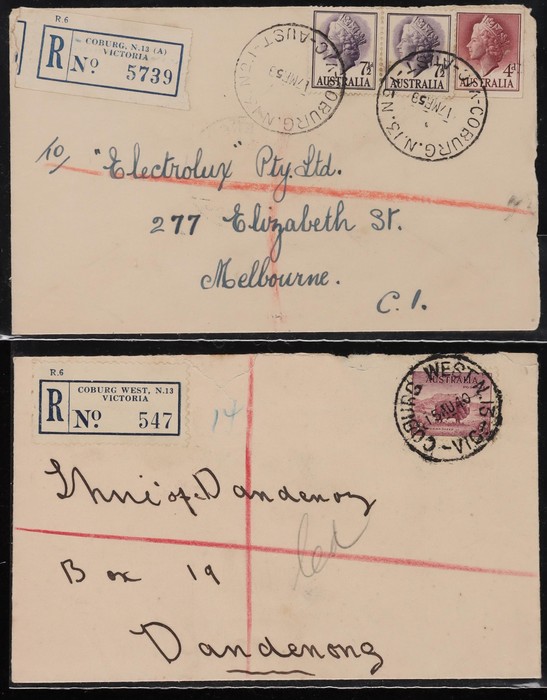 R.6
COBURG, N.13 (A)
VICTORIA
R No 5739
7½ 7½
AUSTRALIA AUSTRALIA 4d AUSTRALIA
COBURG.N.13
VIC-AUST
17MR59
COBURG.N.13
VIC-AUST
17MR59
To/ "Electrolux" Pty. Ltd.
277 Elizabeth St.
Melbourne.
C.1.
R.6
COBURG WEST, N.13
VICTORIA
R No 547
14
AUSTRALIA
COBURG WEST N.13
VIC
of Dandenong
Box 19
Dandenong